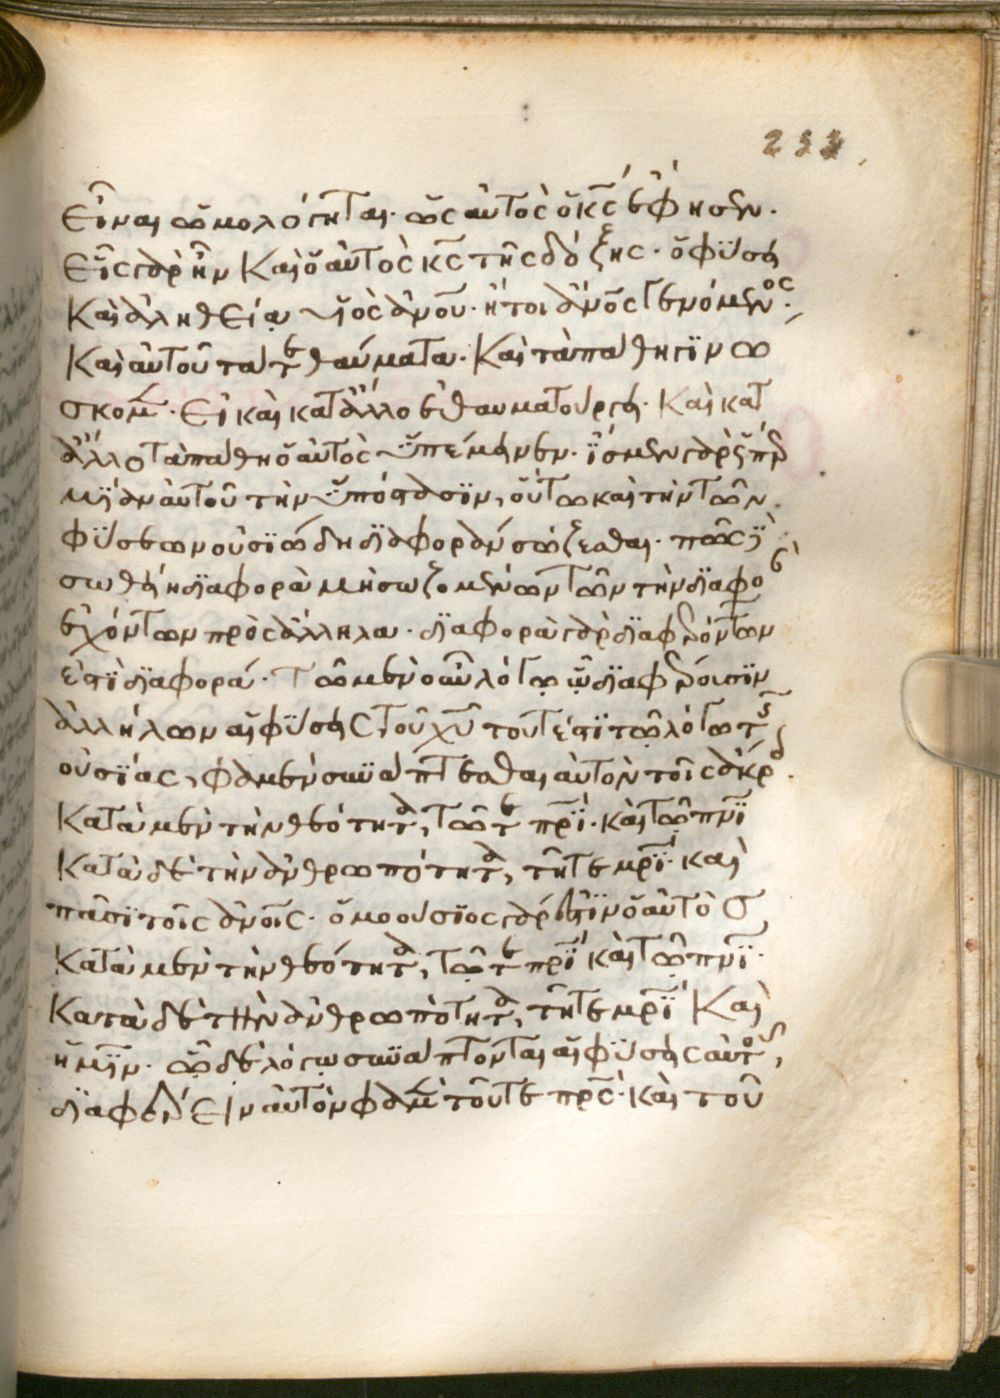 233
εἶναι ὡμολόγηται· ὡς αὐτὸς ὁ κς ἔφησεν·
εἷς γὰρ ἦν καὶ ὁ αὐτὸς κς τῆς δόξης· ὁ φύσει
καὶ ἀληθείᾳ υἱὸς ἀνου· ἤτοι ἀνος γενόμενος·
καὶ αὐτοῦ τά τε θαύματα· καὶ τὰ πάθη γινώ
σκομεν· εἰ καὶ κατ ἄλλο ἐθαυματούργει· καὶ κατ
ἄλλο τὰ πάθη ὁ αὐτὸς ὑπέμεινεν· ἴσμεν γὰρ ὥσπερ
μίαν αὐτοῦ τὴν ὑπόστασιν, οὕτω καὶ τὴν τῶν
φύσεων οὐσιώδη διαφορὰν σώζεσθαι· πῶς
σωθείη διαφορὰ μὴ σωζομένων τῶν τὴν διαφο
ἐχόντων πρὸς ἄλληλα· διαφορὰ γὰρ διαφερόντων
ἐστὶ διαφορά· τῷ μὲν οὖν λόγῳ ᾧ διαφέρουσιν
ἀλλήλων αἱ φύσεις τοῦ χυ τουτέστι τῷ λόγῳ τῆς
οὐσίας, φαμὲν συνάπτεσθαι αὐτὸν τοῖς ἄκροις·
κατὰ μὲν τὴν θεότητα, τῷ τε πρι· καὶ τῷ πνι
κατὰ δὲ τὴν ἀνθρωπότητα, τῇ τε μρι· καὶ
πᾶσι τοῖς ἀνοις· ὁμοούσιος γάρ ἐστιν ὁ αὐτὸς
κατὰ μὲν τὴν θεότητα, τῷ τε πρι καὶ τῷ πνι·
κατὰ δὲ τὴν ἀνθρωπότητα, τῇ τε μρι καὶ
ἡμῖν· ᾧ δὲ λόγῳ συνάπτονται αἱ φύσεις αὐτοῦ,
διαφέρειν αὐτὸν φαμὲν τοῦ τε πρς· καὶ τοῦ